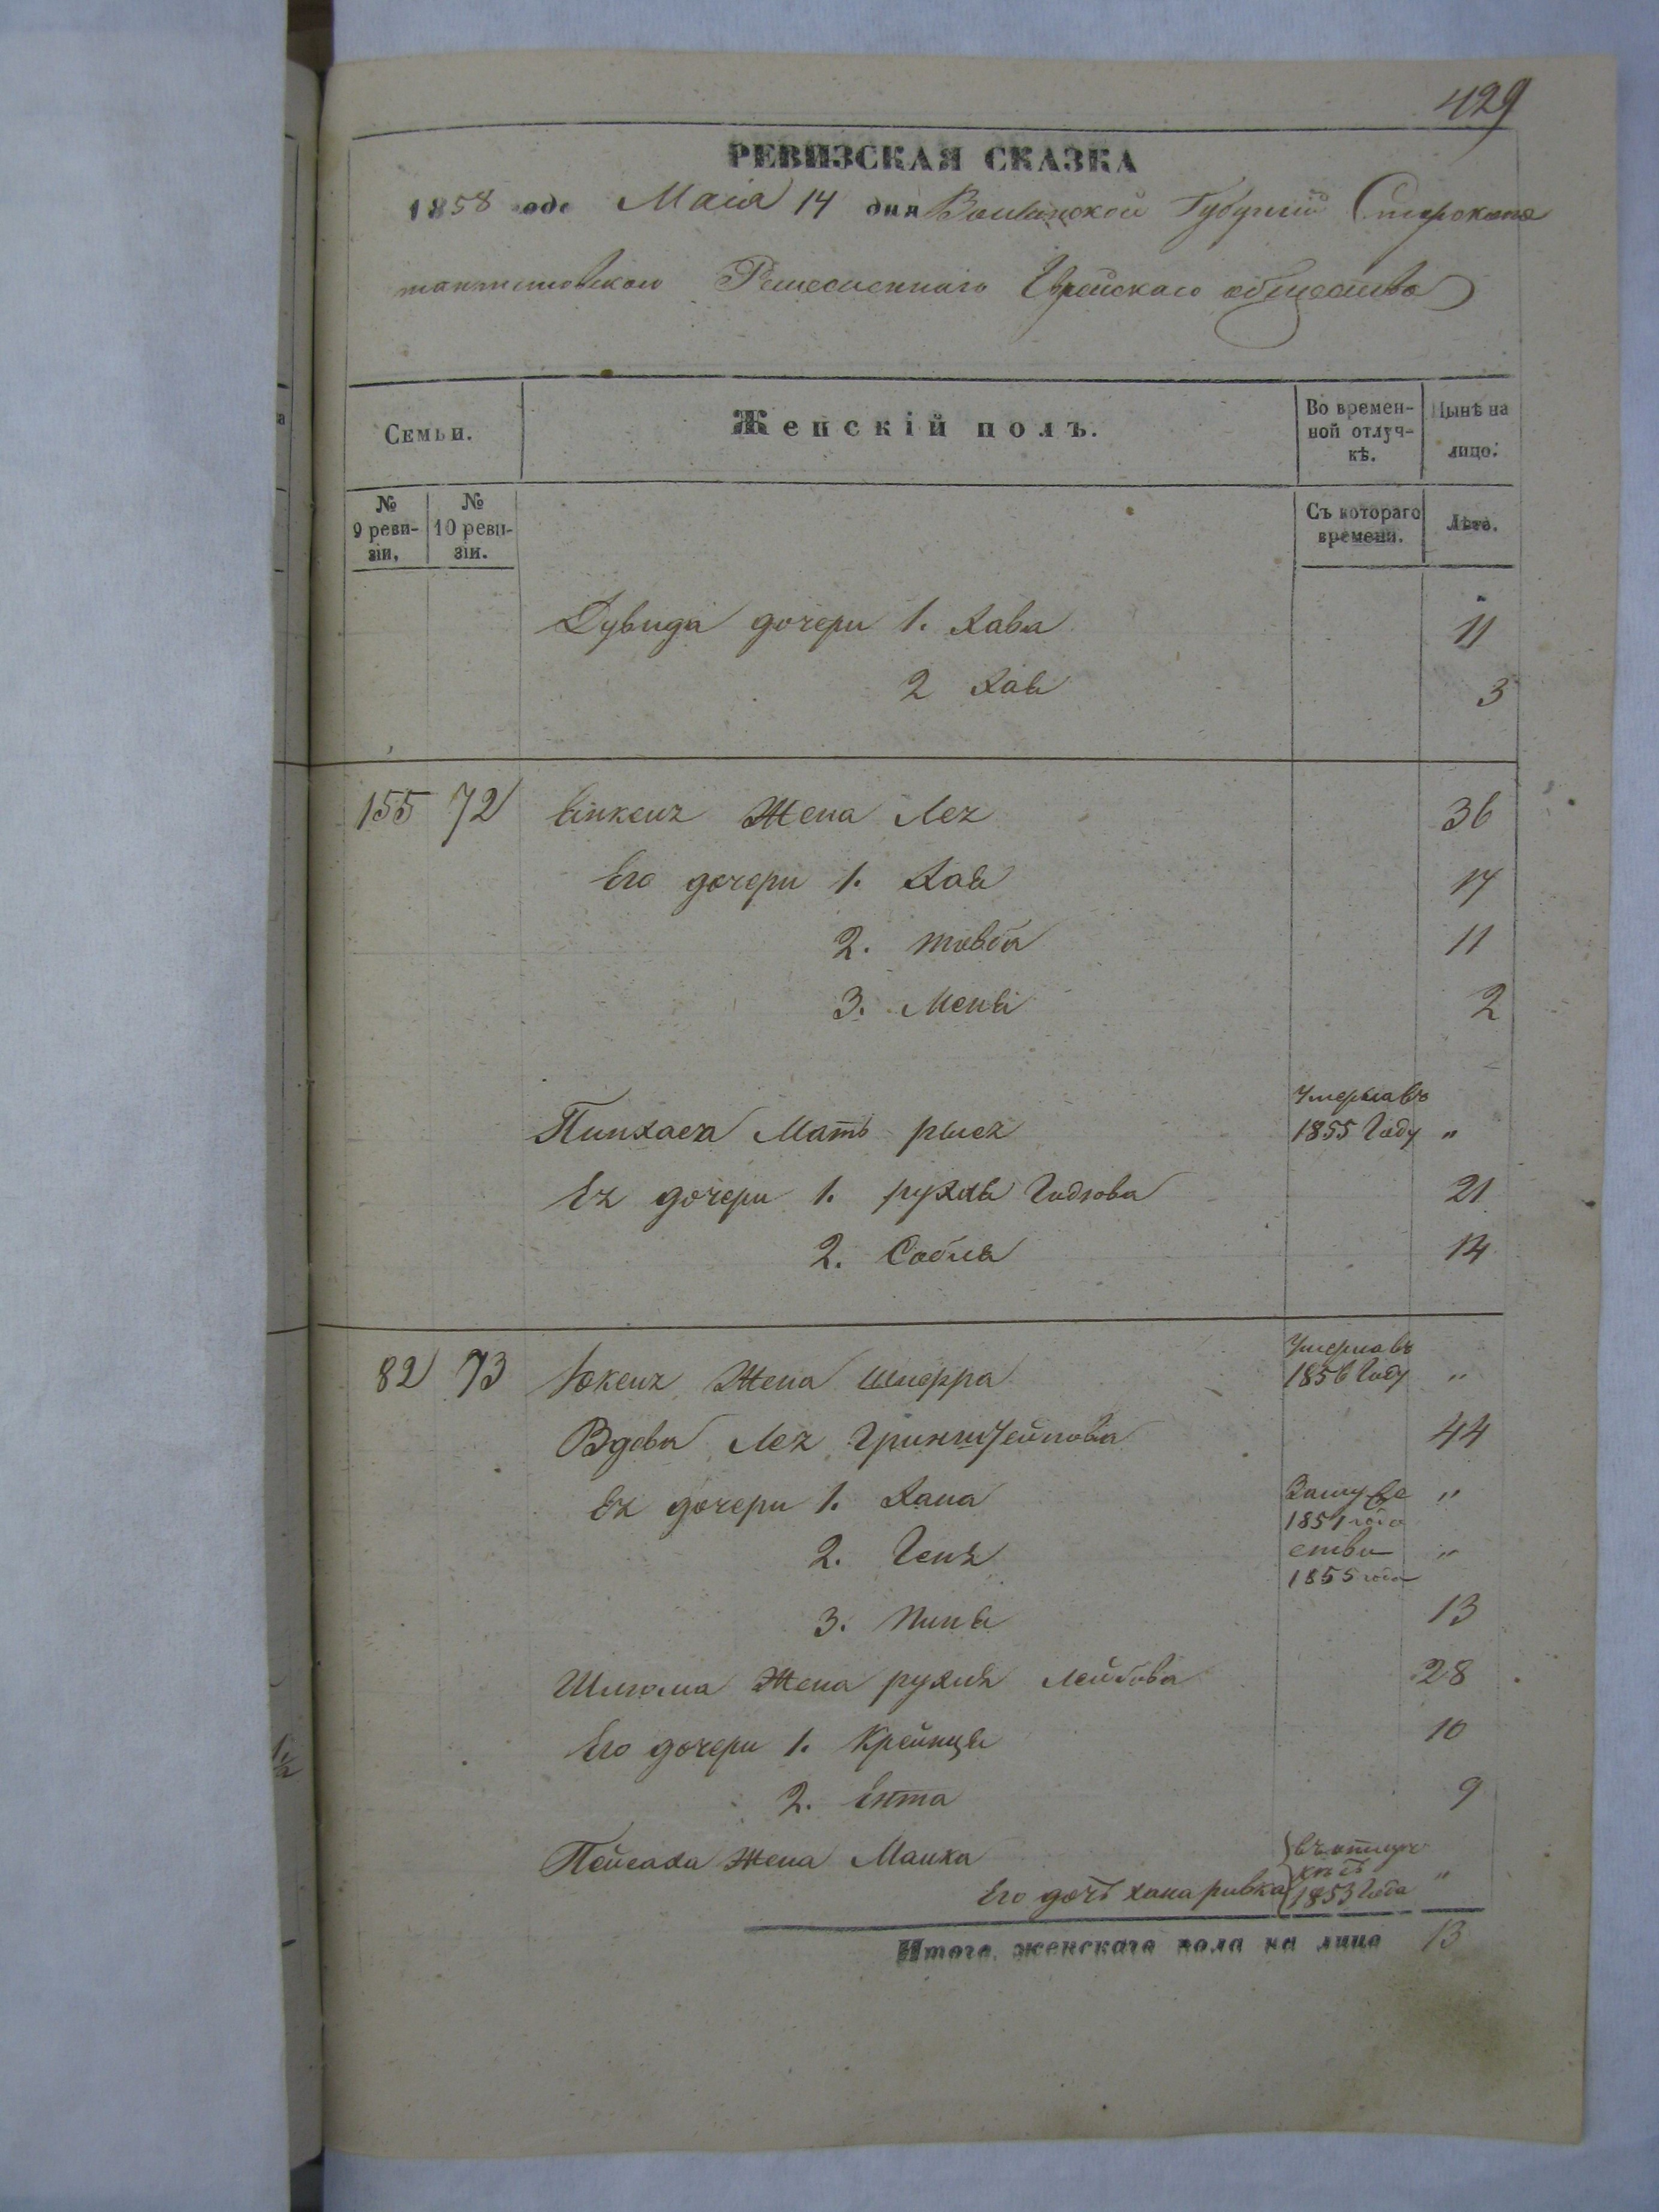 429
РЕВИЗСКАЯ СКАЗКА
1858 года Маія 14 дня Волынской Губерніи Староконс
тантиновскаго Ремесленнаго Еврейскаго общества
Семьи.
Женскій полъ.
Во времен-
ной отлуч-
кѣ.
Нынѣ на
лицо.
№
9 реви-
зіи.
№
10 реви-
зіи.
Съ котораго
времени.
Лѣта.
Дувида дочери 1. Хава 11
2 Хая 3
155 72 Жена Лея 36
Его дочери 1. Хая 17
2. товба 11
3. Меня 2
Пинхаса Мать рыся Умерла въ 1855 Году „
Ея дочери 1. рухля 21
2. Собля 14
82 73 Жена Умерла въ 1856 Году „
Вдова Лея Гринштейнова 44
Ея дочери 1. Хана Замуже „
1851 года
2. Геня ства „
1855 года
3. Пиня 13
Шлиома Жена рухля Лейбова 28
Его дочери 1. Крейнця 10
2. Ента 9
Пейсаха Жена Малка въ отлуч
кѣ съ
Его дочь хана ривка 1853 Года „
Итого женскаго пола на лицо 13